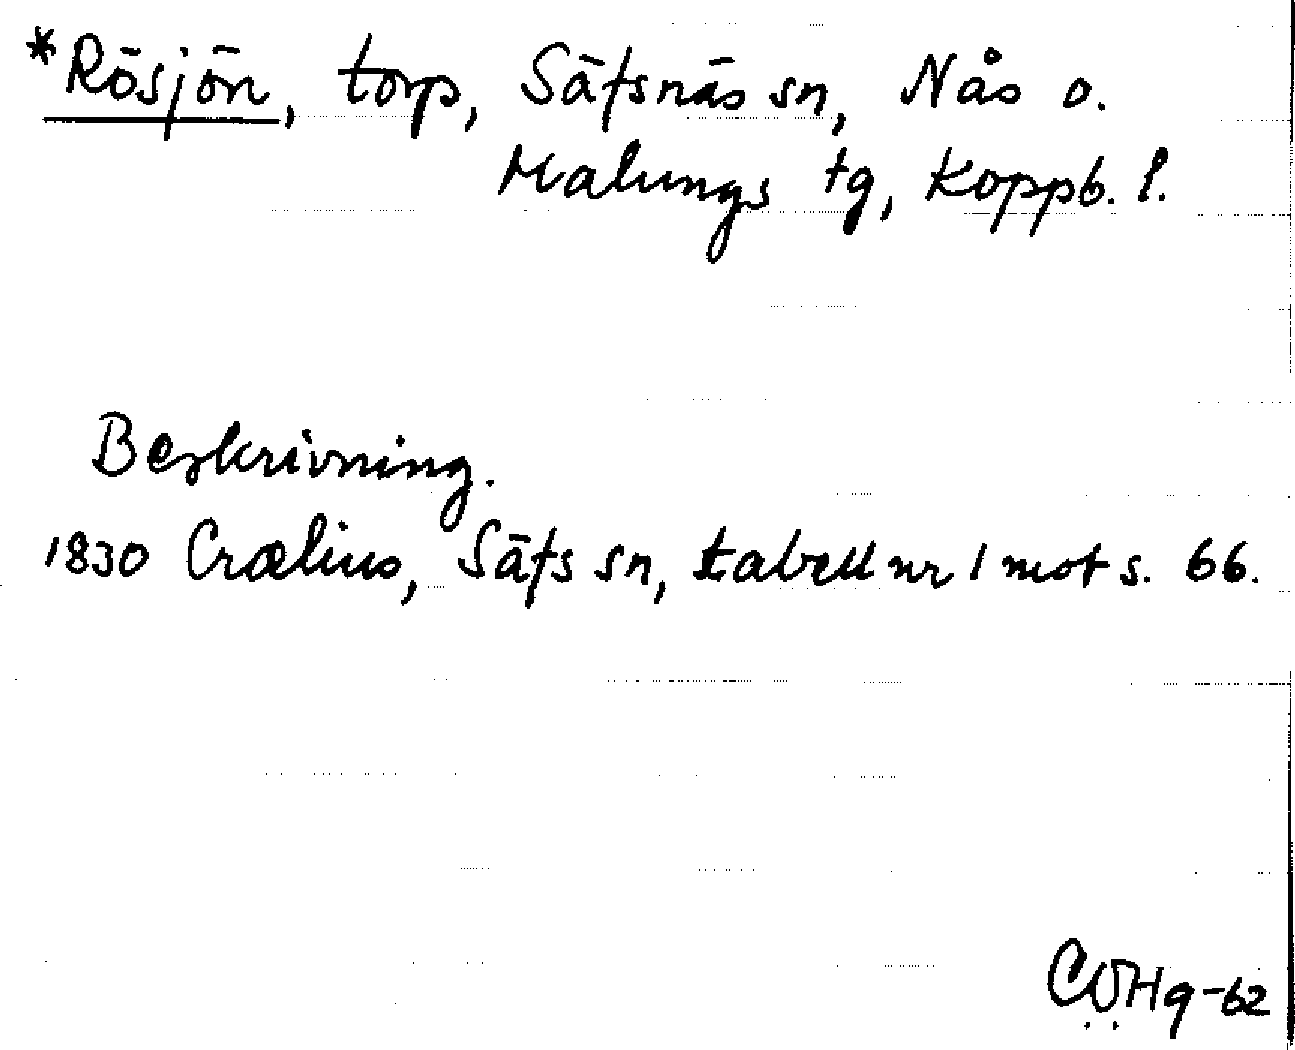 *Rösjön, torp, Säfsnäs sn, Nås o.
Malungs tg, Koppb. l.
Beskrivning.
1830 Crælius, Säfs sn, tabell nr 1 mot s. 66.